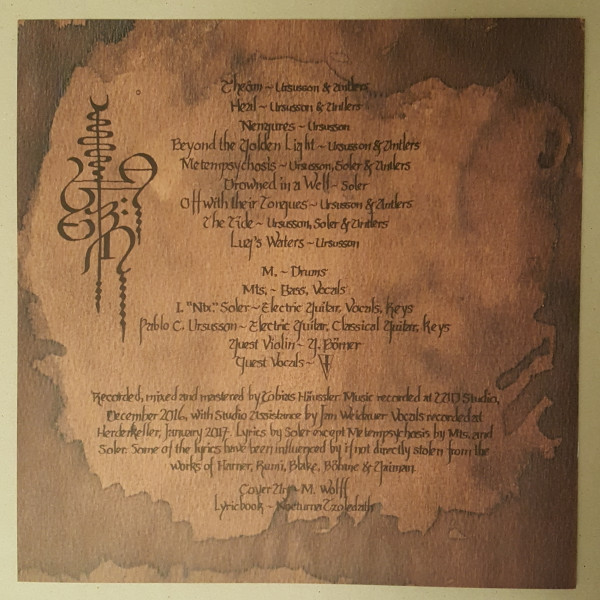 Theōm ~ Ursusson & Antlers
Heal ~ Ursusson & Antlers
Nengures ~ Ursusson
Beyond the Golden Light ~ Ursusson & Antlers
Metempsychosis ~ Ursusson, Soler & Antlers
Drowned in a Well ~ Soler
Off with their Tongues ~ Ursusson & Antlers
The Tide ~ Ursusson, Soler & Antlers
Lugh's Waters ~ Ursusson
M. ~ Drums
Mts. ~ Bass, Vocals
I. "Nix." Soler ~ Electric Guitar, Vocals, Keys
Pablo C. Ursusson ~ Electric Guitar, Classical Guitar, Keys
Guest Violin ~ G. Börner
Guest Vocals ~
Recorded, mixed and mastered by Tobias Häussler. Music recorded at Studio,
December 2016, with Studio Assistance by Jan Weidauer. Vocals recorded at
Herderkeller, January 2017. Lyrics by Soler except Metempsychosis by Mts. and
Soler. Some of the lyrics have been influenced by if not directly stolen from the
works of Harner, Rumi, Blake, Böhme & Gaiman.
Cover Art ~ M. Wolff
Lyricbook ~ Nocturna